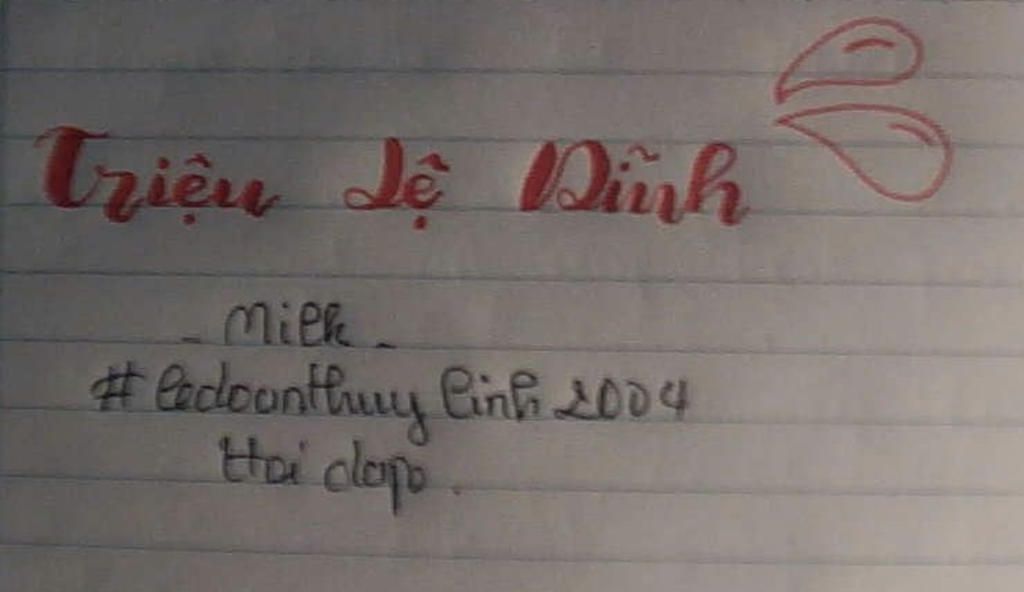 Triệu Lệ Dĩnh
- Milk -
# ledoanthuy linh 2004
Hoi dapo.